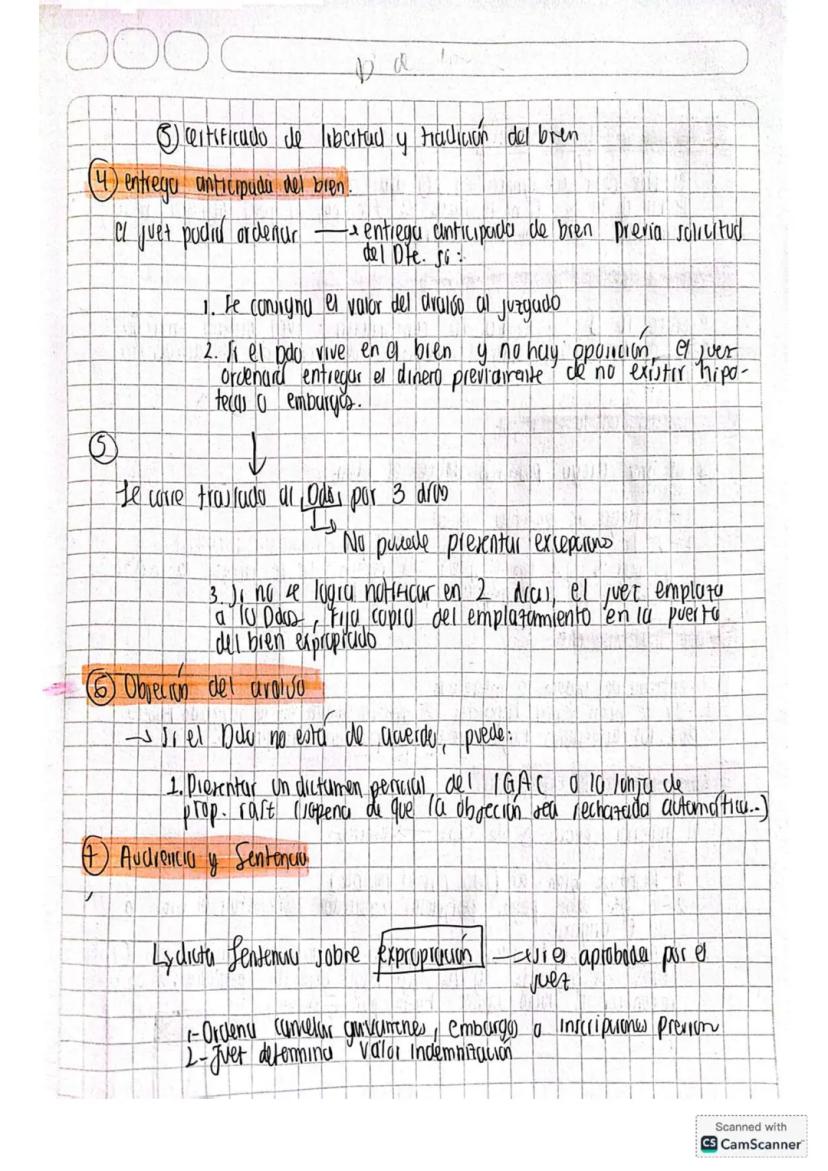 ③ certificado de libertad y tradición del bien
④ entrega anticipada del bien.
el juez podrá ordenar → entrega anticipada de bien previa solicitud
del Dte. si:
1. Se consigna el valor del avalúo al juzgado
2. Si el Ddo vive en el bien y no hay oposición, el juez
ordenará entregar el dinero previamente de no existir hipo-
tecas o embargos.
⑤
Se corre traslado al Ddo, por 3 días
No puede presentar excepciones
3. Si no se logra notificar en 2 días, el juez emplaza
a lo Ddos, fija copia del emplazamiento en la puerta
del bien expropiado
⑥ Objeción del avalúo
→ Si el Ddo no está de acuerdo, puede:
1. Presentar un dictamen pericial del IGAC o la lonja de
prop. raíz (sopena de que la objeción sea rechazada automática..)
⑦ Audiencia y Sentencia
↳ dicta Sentencia sobre expropiación → si es aprobada por el
juez
1- Ordena cancelar gravámenes, embargos o inscripciones previas
2- Juez determina valor indemnización
Scanned with
CS CamScanner